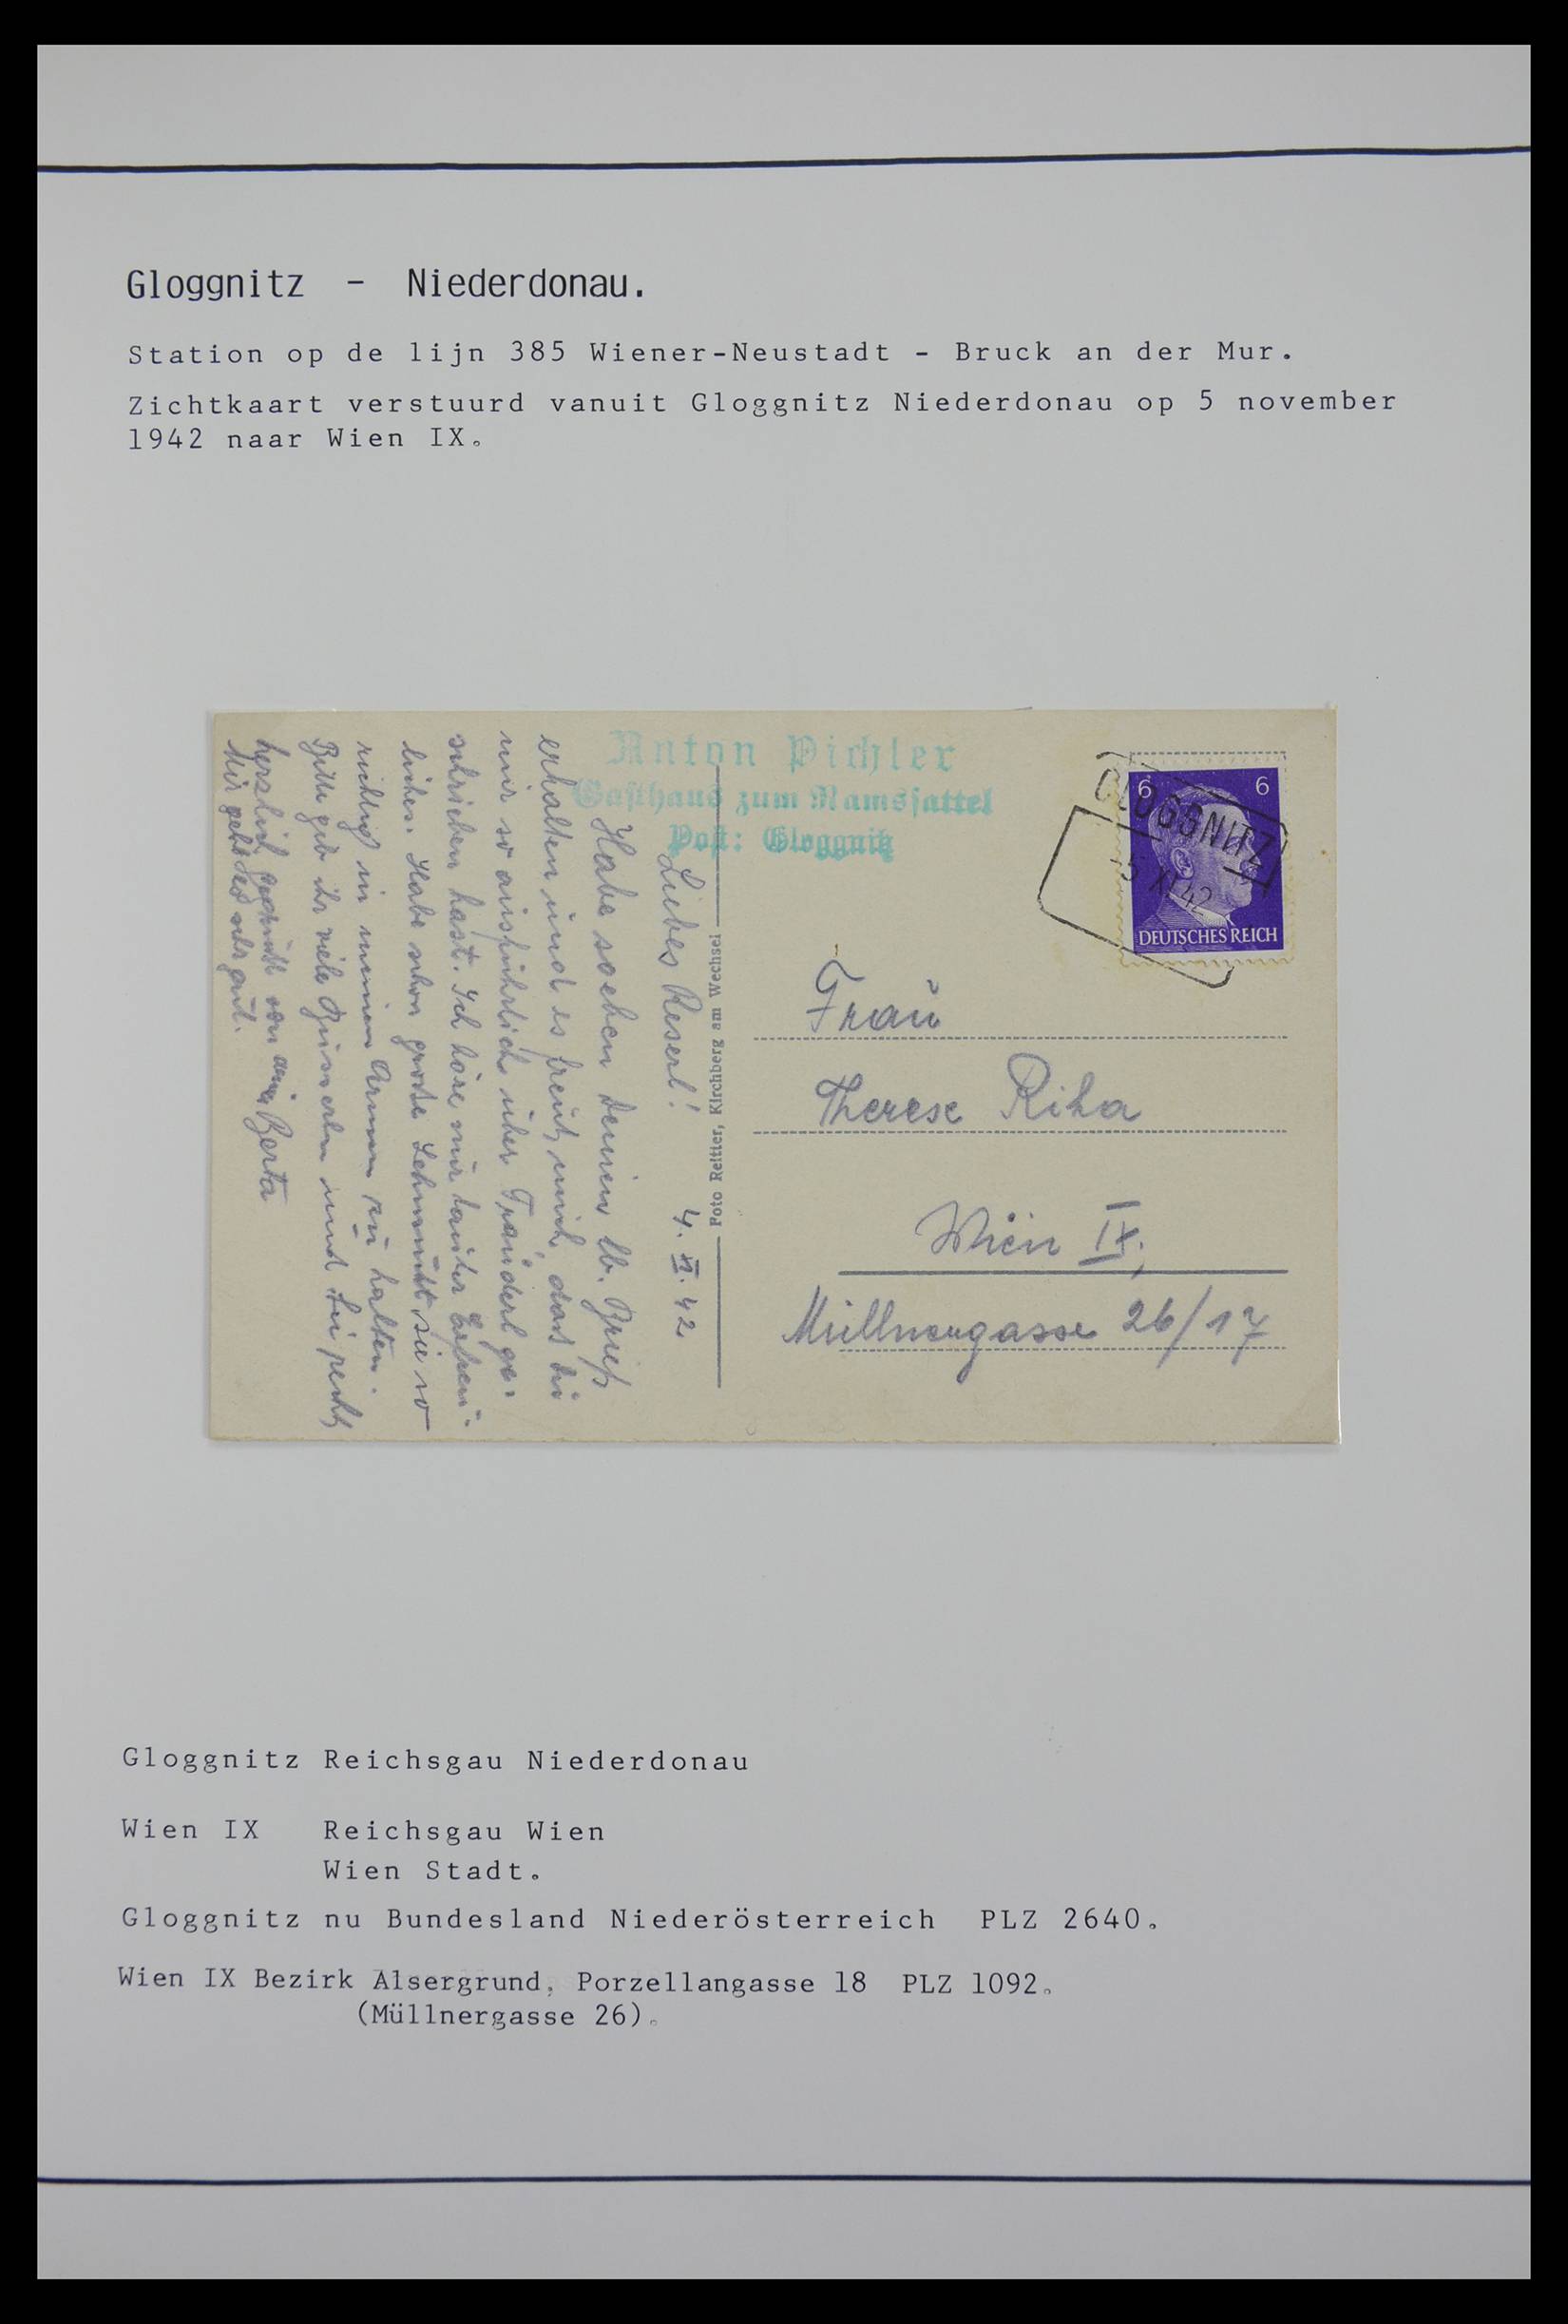 Gloggnitz - Niederdonau.
Station op de lijn 385 Wiener-Neustadt - Bruck an der Mur.
Zichtkaart verstuurd vanuit Gloggnitz Niederdonau op 5 november
1942 naar Wien IX.
Anton Pichler
Gasthaus zum Ramssattel
Post: Gloggnitz
6 6
GLOGGNITZ
-5 XI 42
DEUTSCHES REICH
Liebes Reserl! 4. XI. 42
Habe soeben Deinen lb. Brief
erhalten und es freut mich, das Du
mir so ausführlich über Trauderl ge-
schrieben hast. Ich höre nur lauter Erfreu-
liches. Habe schon große Sehnsucht sie so
richtig in meinen Armen zu halten.
Bitte gib ihr viele Busserln und Du recht
herzlich gegrüßt von Berta
Mir geht es sehr gut.
Foto Reitter, Kirchberg am Wechsel
Frau
Therese Riha
Wien IX.,
Müllnergasse 26/17
Gloggnitz Reichsgau Niederdonau
Wien IX Reichsgau Wien
Wien Stadt.
Gloggnitz nu Bundesland Niederösterreich PLZ 2640.
Wien IX Bezirk Alsergrund, Porzellangasse 18 PLZ 1092.
(Müllnergasse 26).